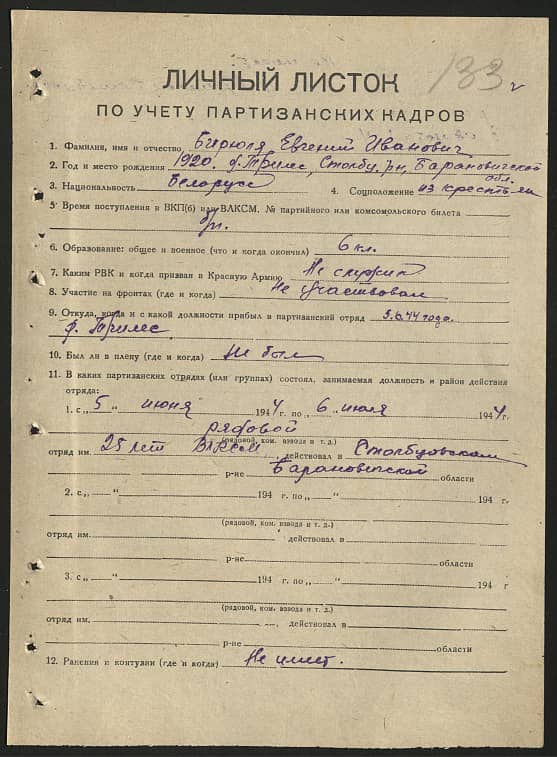 133
ЛИЧНЫЙ ЛИСТОК
ПО УЧЕТУ ПАРТИЗАНСКИХ КАДРОВ
1. Фамилия, имя и отчество Бирюля Евгений Иванович
2. Год и место рождения 1920. д. Трилес, Столбц. рн, Барановичской обл.
3. Национальность Белорусс 4. Соцположение из крестьян
5 Время поступления в ВКП(б) или ВЛКСМ, № партийного или комсомольского билета
б/п.
6. Образование: общее и военное (что и когда окончил) 6 кл.
7. Каким РВК и когда призван в Красную Армию Не служил
8. Участие на фронтах (где и когда) Не участвовал
9. Откуда, когда и с какой должности прибыл в партизанский отряд 5.6.44 года.
д. Трилес
10. Был ли в плену (где и когда) Не был
11. В каких партизанских отрядах (или группах) состоял, занимаемая должность и район действия
отряда:
1. с „5„ июня 1944 г. по „6 июля 1944 г.
рядовой
(рядовой, ком. взвода и т. д.)
отряд им. 25 лет ВЛКСМ, действовал в Столбцовском
р-не Барановичской области
2. с „ “ 194 г. по „ “ 194 г.
(рядовой, ком. взвода и т. д.)
отряд им. , действовал в
р-не области
3. с „ “ 194 г. по „ “ 194 г
(рядовой, ком. взвода и т. д.)
отряд им. , действовал в
р-не области
12. Ранения и контузии (где и когда) Не имеет.